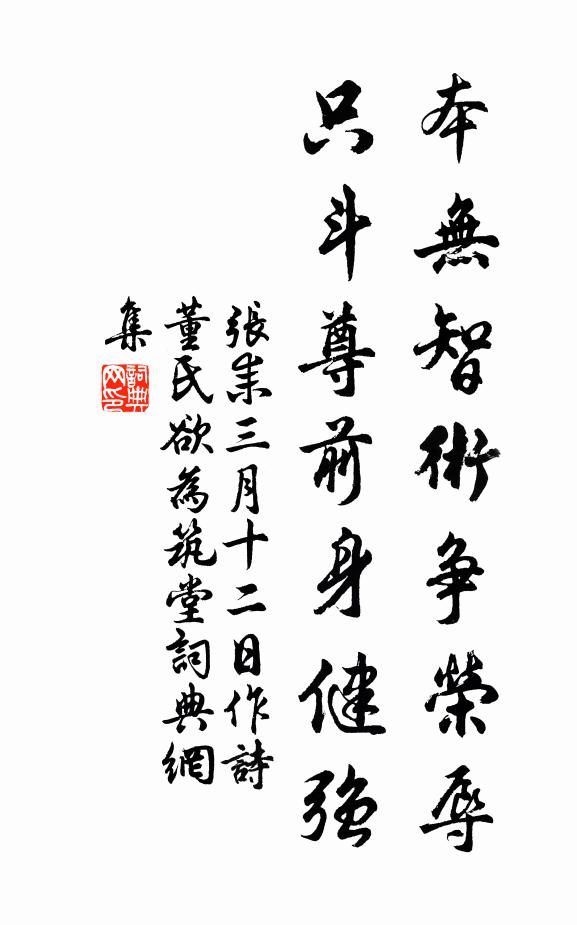 本無智術爭榮辱
只斗尊前身健強
張耒三月十二日作詩
董氏欲為筑堂詞典網
集
詞典
网印